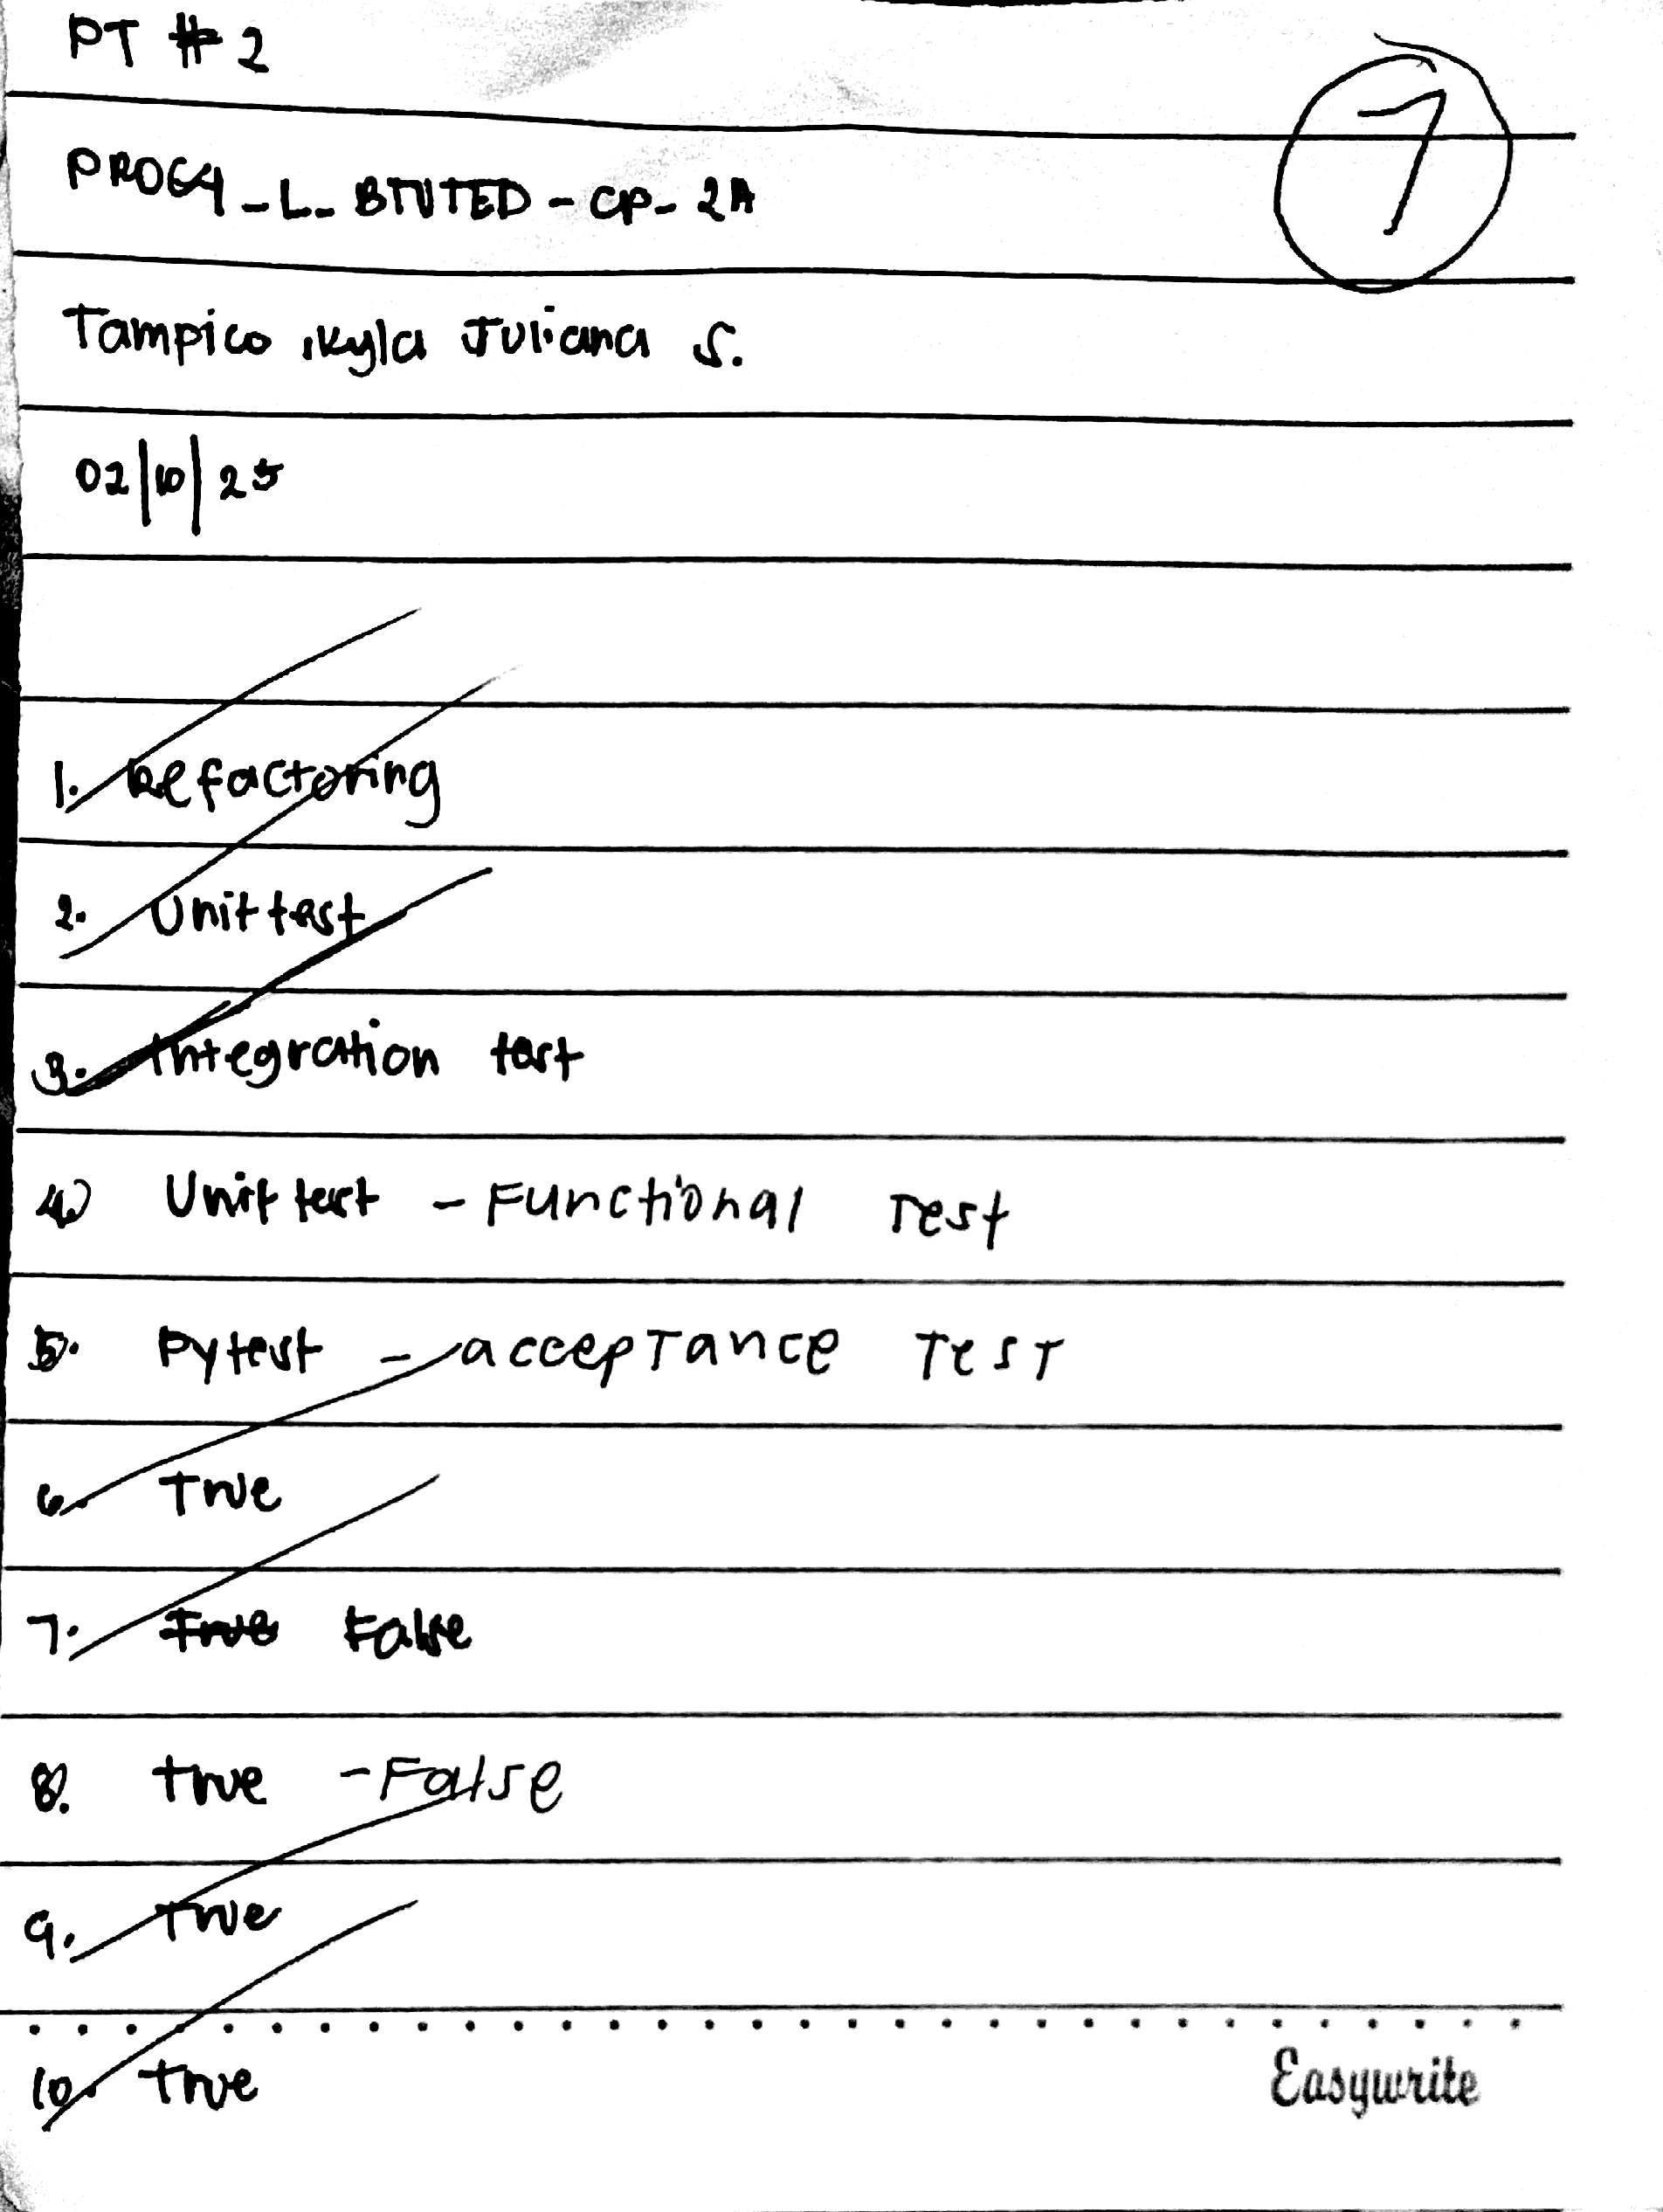 PT # 2
7
PROG4_L_BTVTED-CP-2A
Tampico, Kyla Juliana S.
02/10/25
1. Refactoring
2. Unit test
3. Integration test
4. Unit test - Functional Test
5. Pytest - acceptance Test
6. True
7. True False
8. true - False
9. True
10. true
Easywrite